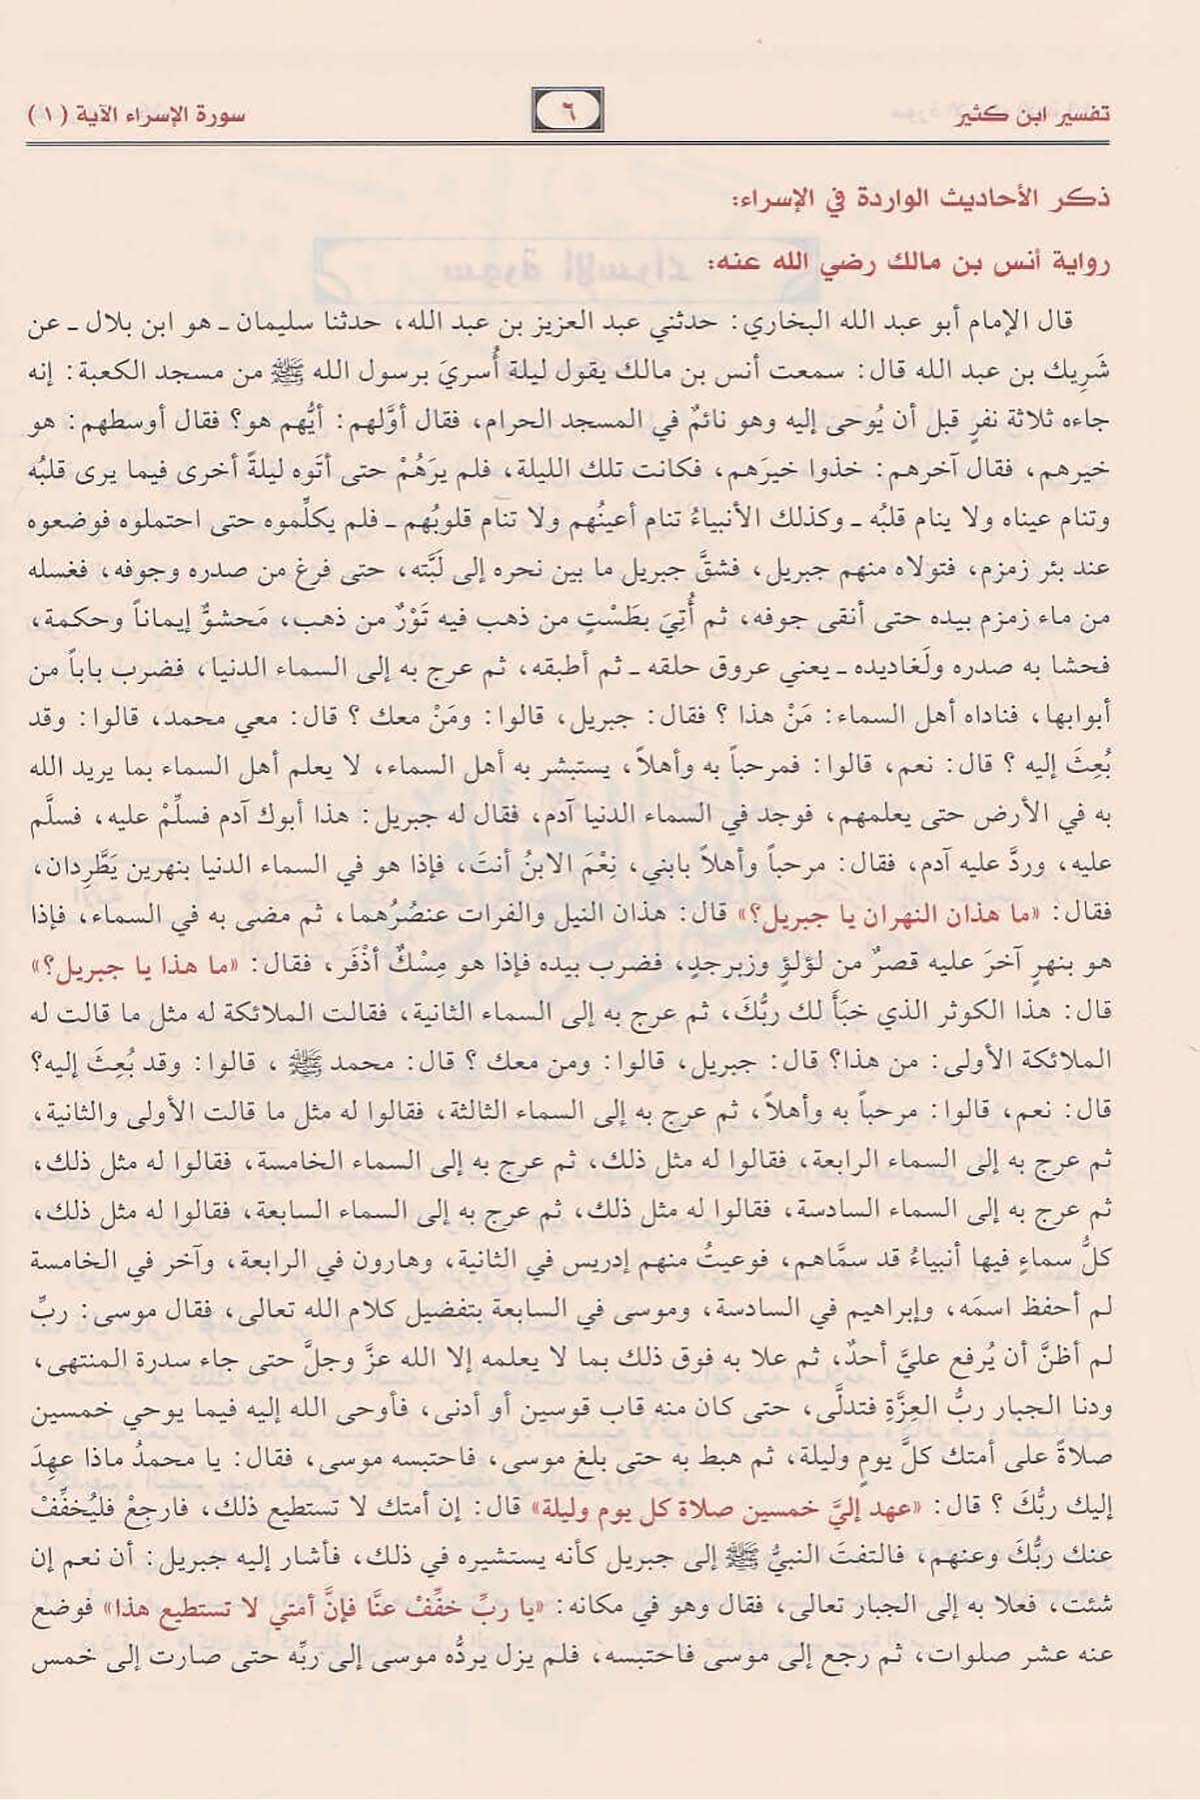 تفسير ابن كثير
٦
سورة الإسراء الآية (١)
ذكر الأحاديث الواردة في الإسراء:
رواية أنس بن مالك رضي الله عنه:
قال الإمام أبو عبد الله البخاري: حدثني عبد العزيز بن عبد الله، حدثنا سليمان ـ هو ابن بلال ـ عن
شَرِيك بن عبد الله قال: سمعت أنس بن مالك يقول ليلة أُسريَ برسول الله ﷺ من مسجد الكعبة: إنه
جاءه ثلاثة نفرٍ قبل أن يُوحى إليه وهو نائمٌ في المسجد الحرام، فقال أوَّلهم: أيُّهم هو؟ فقال أوسطهم: هو
خيرهم، فقال آخرهم: خذوا خيرَهم، فكانت تلك الليلة، فلم يرَهُمْ حتى أتَوه ليلةً أخرى فيما يرى قلبُه
وتنام عيناه ولا ينام قلبُه ـ وكذلك الأنبياءُ تنام أعينُهم ولا تنام قلوبُهم ـ فلم يكلِّموه حتى احتملوه فوضعوه
عند بئر زمزم، فتولاه منهم جبريل، فشقَّ جبريل ما بين نحره إلى لَبَّته، حتى فرغ من صدره وجوفه، فغسله
من ماء زمزم بيده حتى أنقى جوفه، ثم أُتِيَ بطَسْتٍ من ذهب فيه تَوْرٌ من ذهب، مَحشوٌّ إيماناً وحكمة،
فحشا به صدره ولَغاديده ـ يعني عروق حلقه ـ ثم أطبقه، ثم عرج به إلى السماء الدنيا، فضرب باباً من
أبوابها، فناداه أهل السماء: مَنْ هذا؟ فقال: جبريل، قالوا: ومَنْ معك؟ قال: معي محمد، قالوا: وقد
بُعِثَ إليه؟ قال: نعم، قالوا: فمرحباً به وأهلاً، يستبشر به أهل السماء، لا يعلم أهل السماء بما يريد الله
به في الأرض حتى يعلمهم، فوجد في السماء الدنيا آدم، فقال له جبريل: هذا أبوك آدم فسلِّمْ عليه، فسلَّم
عليه، وردَّ عليه آدم، فقال: مرحباً وأهلاً بابني، نِعْمَ الابنُ أنتَ، فإذا هو في السماء الدنيا بنهرين يَطَّرِدان،
فقال: «ما هذان النهران يا جبريل؟» قال: هذان النيل والفرات عنصُرُهما، ثم مضى به في السماء، فإذا
هو بنهرٍ آخرَ عليه قصرٌ من لؤلؤٍ وزبرجدٍ، فضرب بيده فإذا هو مِسْكٌ أذْفَر، فقال: «ما هذا يا جبريل؟»
قال: هذا الكوثر الذي خبَأَ لك ربُّكَ، ثم عرج به إلى السماء الثانية، فقالت الملائكة له مثل ما قالت له
الملائكة الأولى: من هذا؟ قال: جبريل، قالوا: ومن معك؟ قال: محمد ﷺ، قالوا: وقد بُعِثَ إليه؟
قال: نعم، قالوا: مرحباً به وأهلاً، ثم عرج به إلى السماء الثالثة، فقالوا له مثل ما قالت الأولى والثانية،
ثم عرج به إلى السماء الرابعة، فقالوا له مثل ذلك، ثم عرج به إلى السماء الخامسة، فقالوا له مثل ذلك،
ثم عرج به إلى السماء السادسة، فقالوا له مثل ذلك، ثم عرج به إلى السماء السابعة، فقالوا له مثل ذلك،
كلُّ سماءٍ فيها أنبياءُ قد سمَّاهم، فوعيتُ منهم إدريس في الثانية، وهارون في الرابعة، وآخر في الخامسة
لم أحفظ اسمَه، وإبراهيم في السادسة، وموسى في السابعة بتفضيل كلام الله تعالى، فقال موسى: ربِّ
لم أظنَّ أن يُرفع عليَّ أحدٌ، ثم علا به فوق ذلك بما لا يعلمه إلا الله عزَّ وجلَّ حتى جاء سدرة المنتهى،
ودنا الجبار ربُّ العِزَّةِ فتدلَّى، حتى كان منه قاب قوسين أو أدنى، فأوحى الله إليه فيما يوحي خمسين
صلاةً على أمتك كلَّ يومٍ وليلة، ثم هبط به حتى بلغ موسى، فاحتبسه موسى، فقال: يا محمدُ ماذا عهِدَ
إليك ربُّكَ؟ قال: «عهد إليَّ خمسين صلاة كل يوم وليلة» قال: إن أمتك لا تستطيع ذلك، فارجِعْ فليُخفِّفْ
عنك ربُّكَ وعنهم، فالتفتَ النبيُّ ﷺ إلى جبريل كأنه يستشيره في ذلك، فأشار إليه جبريل: أن نعم إن
شئت، فعلا به إلى الجبار تعالى، فقال وهو في مكانه: «يا ربِّ خفِّفْ عنَّا فإنَّ أمتي لا تستطيع هذا» فوضع
عنه عشر صلوات، ثم رجع إلى موسى فاحتبسه، فلم يزل يردُّه موسى إلى ربِّه حتى صارت إلى خمس